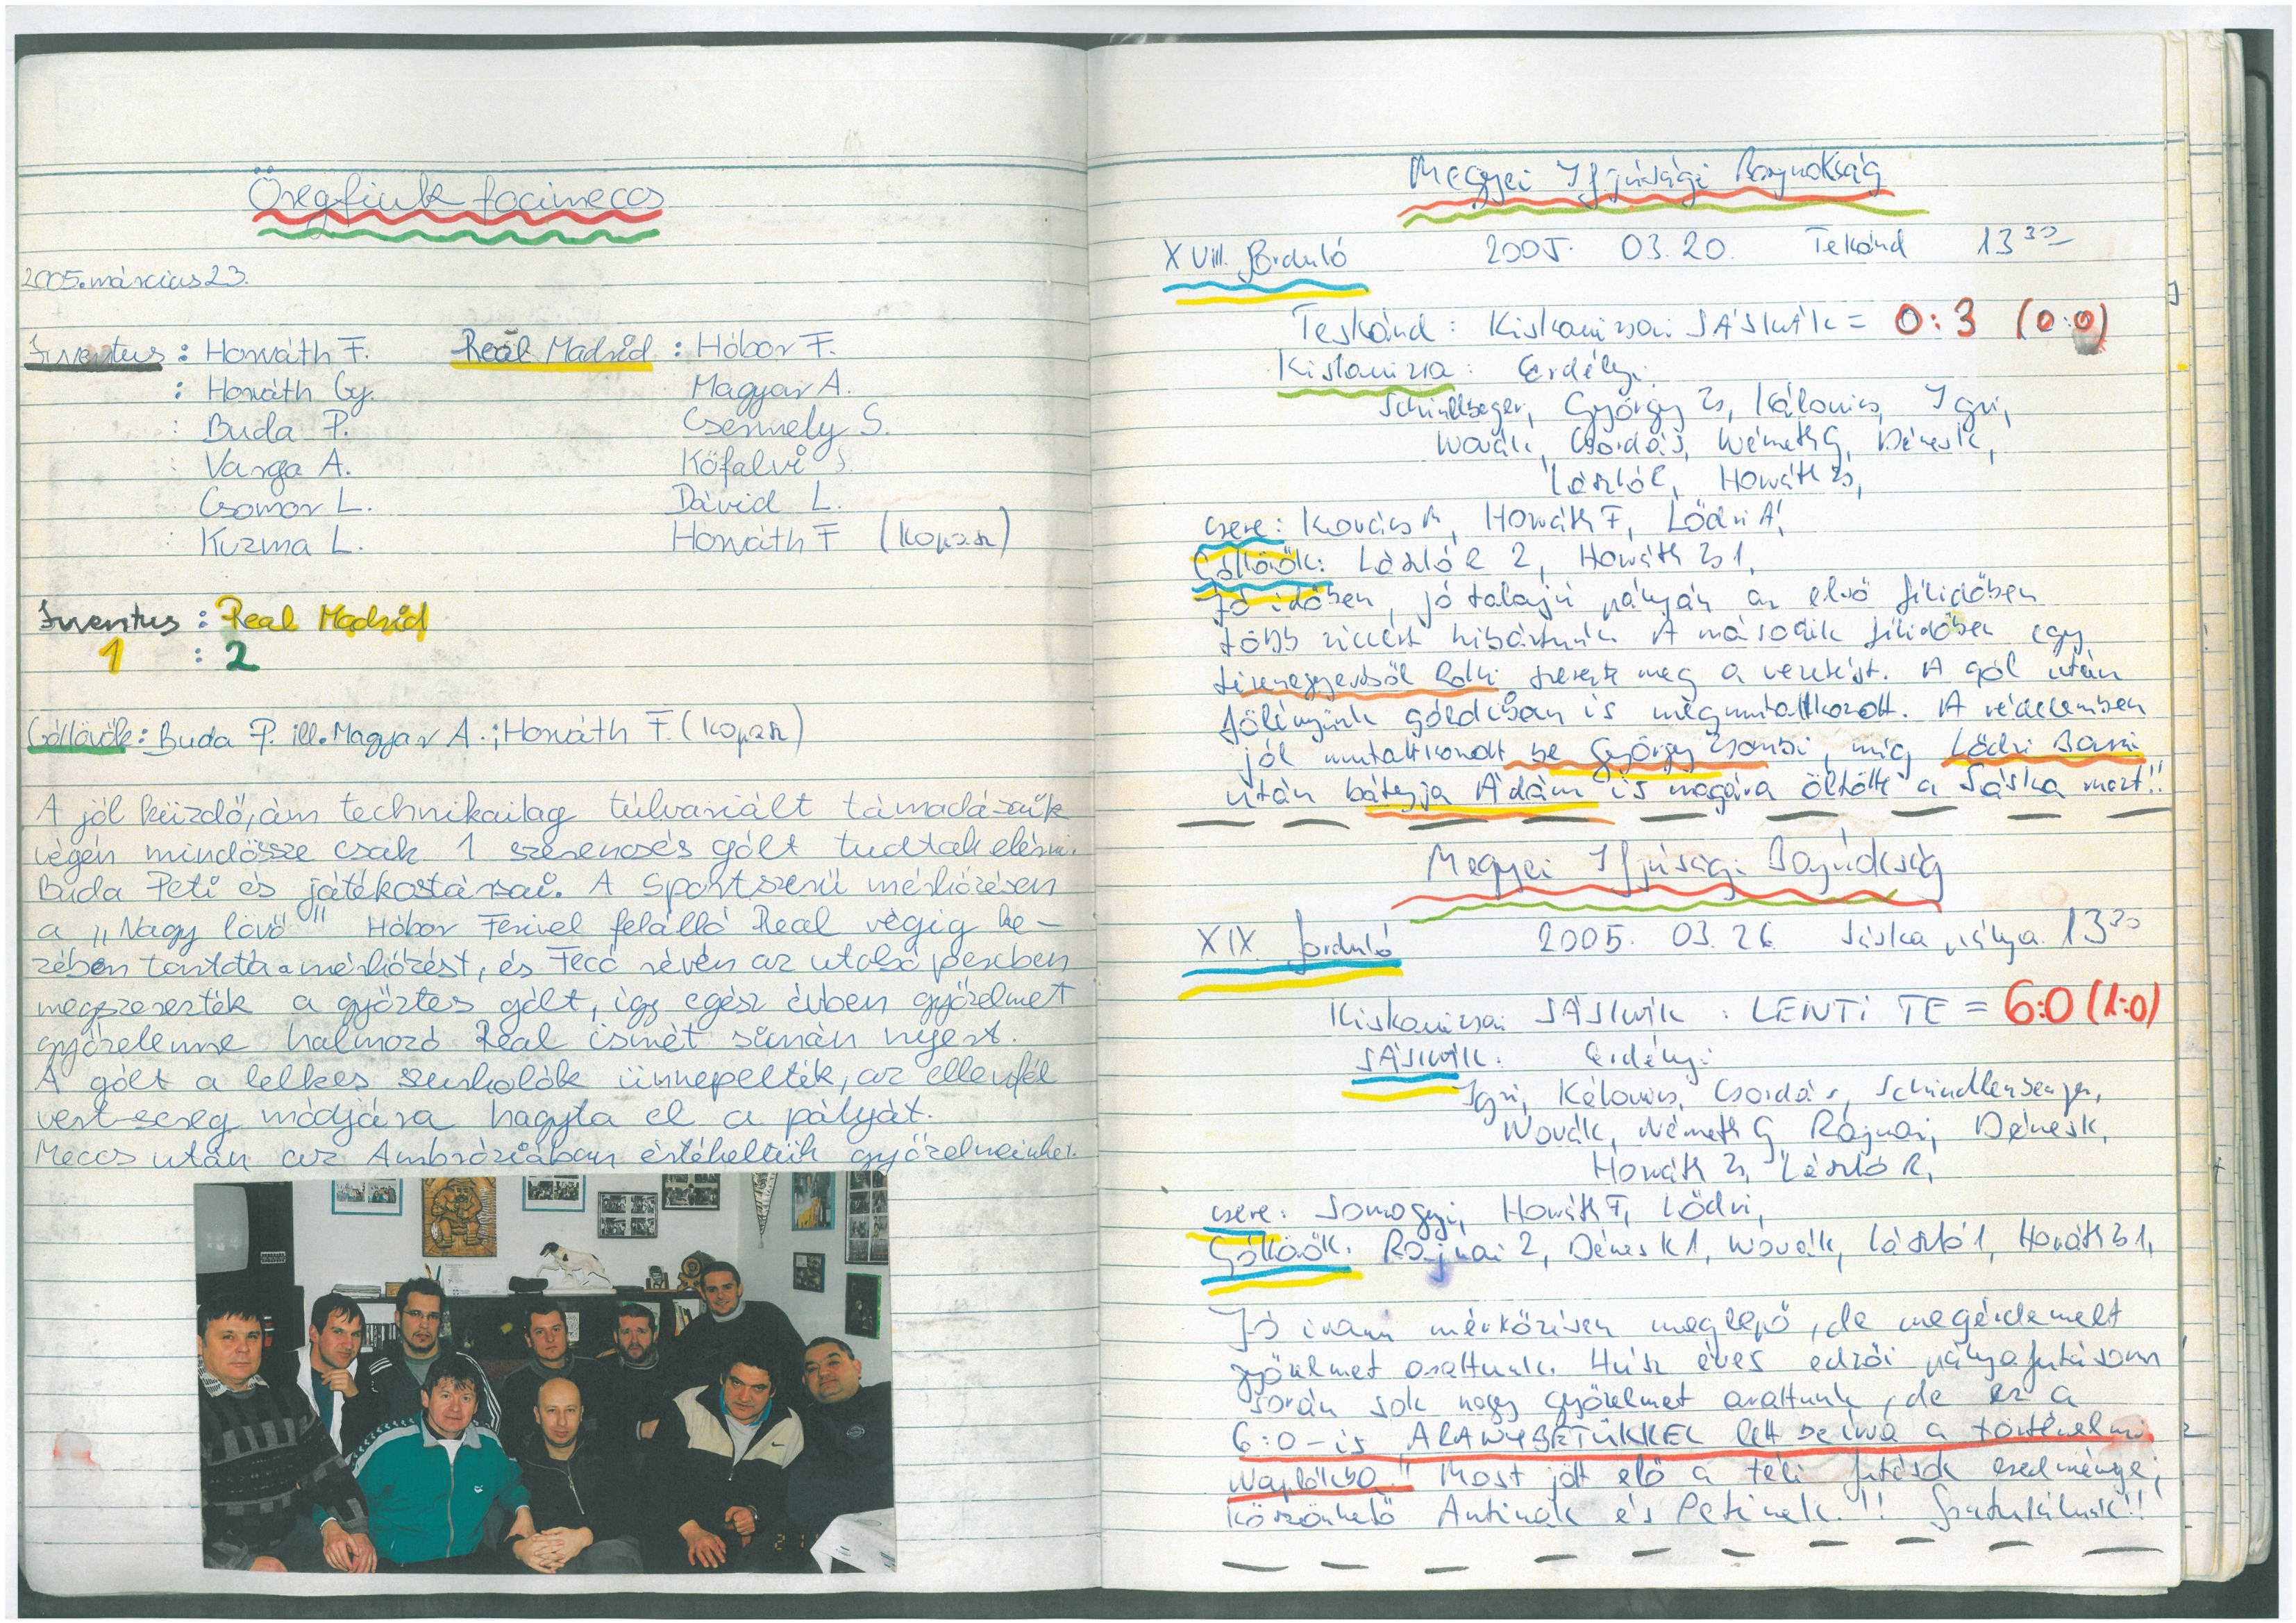 Öregfiúk focimeccs
2005.március 23.
Juventus : Horváth F. Reál Madrid : Hóbor F.
: Horváth Gy. Magyar A.
: Buda P. Csermely S.
: Varga A. Kőfalvi S.
Csomor L. Dávid L.
: Kuzma L. Horváth F (kopasz)
Juventus : Real Madrid
1 : 2
Góllövők: Buda P. ill. Magyar A.; Horváth F. (kopasz)
A jól küzdő, ám technikailag túlvariált támadásaik
végén mindössze csak 1 szerencsés gólt tudtak elérni.
Buda Peti és játékostársai. A Sportszerű mérkőzésen
a „Nagy lövő" Hóbor Ferivel felálló Real végig ke-
zében tartotta a mérkőzést, és Fecó révén az utolsó percben
megszerezték a győztes gólt, így egész évben győzelmet
győzelemre halmozó Real ismét simán nyert.
A gólt a lelkes szurkolók ünnepelték, az ellenfél
vert sereg módjára hagyta el a pályát.
Meccs után az Ambróziában értékeltük győzelmeinket.
Megyei Ifjúsági Bajnokság
XVIII. forduló 2005. 03.20. Tekánd 13 30
Teskánd : Kiskanizsai SÁSKÁK = 0:3 (0:0)
Kiskanizsa: Erdélyi
György Zs, Kálovics, Igri,
Novák, Csordás, Németh G, Dénes K,
László R, Horváth Zs,
csere: Kovács M, Horváth F, Lődri Á,
Góllövők: László R 2, Horváth Zs 1,
Jó időben, jó talajú pályán az első félidőben
több ziccert hibáztunk. A második félidőben egy
tizenegyesből Robi szerezte meg a vezetést. A gól után
fölényünk gólokban is megmutatkozott. A védelemben
jól mutatkozott be György Zsombi, míg Lődri Barni
után bátyja Ádám is magára öltötte a Sáska mezt!!
Megyei Ifjúsági Bajnokság
XIX. forduló 2005. 03.26. Sáska pálya. 13 30
Kiskanizsai SÁSKÁK : LENTI TE = 6:0 (1:0)
SÁSKÁK: Erdélyi
Igri, Kálovics, Csordás, Schindlerberger,
Novák, Németh G, Rajnai, Dénes K,
Horváth Zs, László R,
csere: Somogyi, Horváth F, Lődri,
Góllövők: Rajnai 2, Dénes K 1, Novák, László 1, Horváth Zs 1,
Jó iramú mérkőzésen meglepő, de megérdemelt
győzelmet arattunk. Húsz éves edzői pályafutásom
során sok nagy győzelmet arattunk, de ez a
6:0-is ARANYBETŰKKEL lett beírva a történelmi
Naplókba!! Most jött elő a téli futások eredménye,
köszönhető Antinak és Petinek!!! Gratulálunk!!